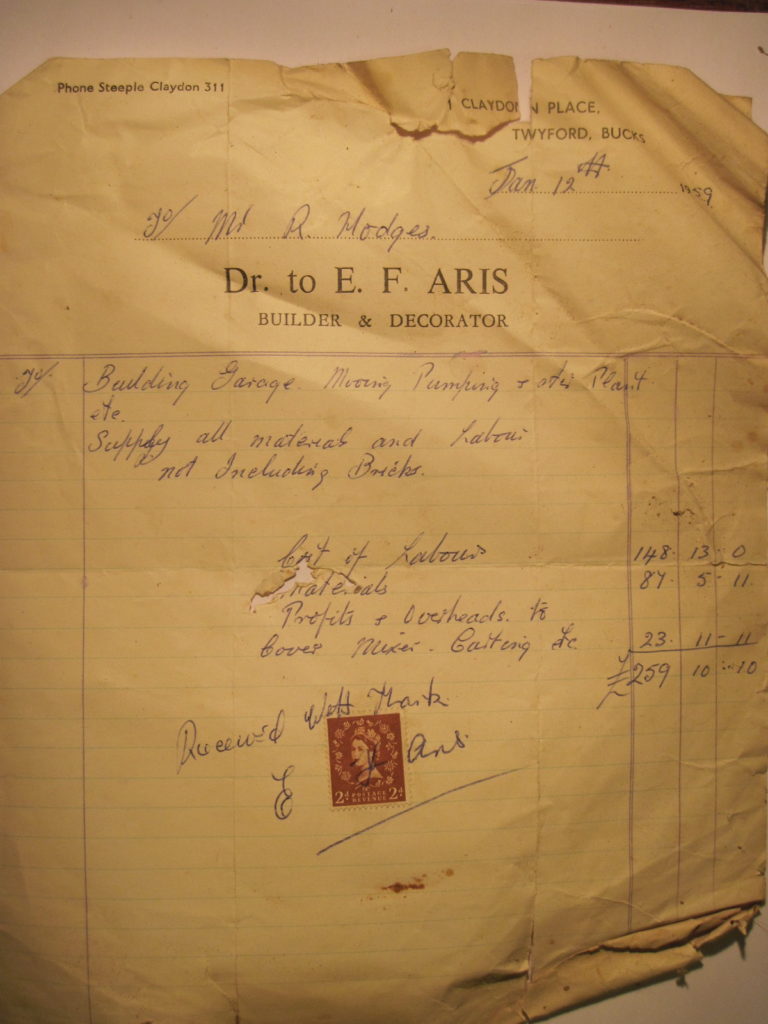 Phone Steeple Claydon 311
1 CLAYDON PLACE,
TWYFORD, BUCKS
Jan 12th 1959
To/ Mr R. Hodges.
Dr. to E. F. ARIS
BUILDER & DECORATOR
To/ Building Garage. Moving Pumping & other Plant
etc.
Supply all materials and Labour
not Including Bricks.
Cost of Labour 148 - 13 - 0
Materials 87 - 5 - 11
Profits & Overheads. to
Cover Mixer. Carting Etc. 23 - 11 - 11
£259 10 - 10
Received With Thanks
E F Aris
2D POSTAGE REVENUE 2D